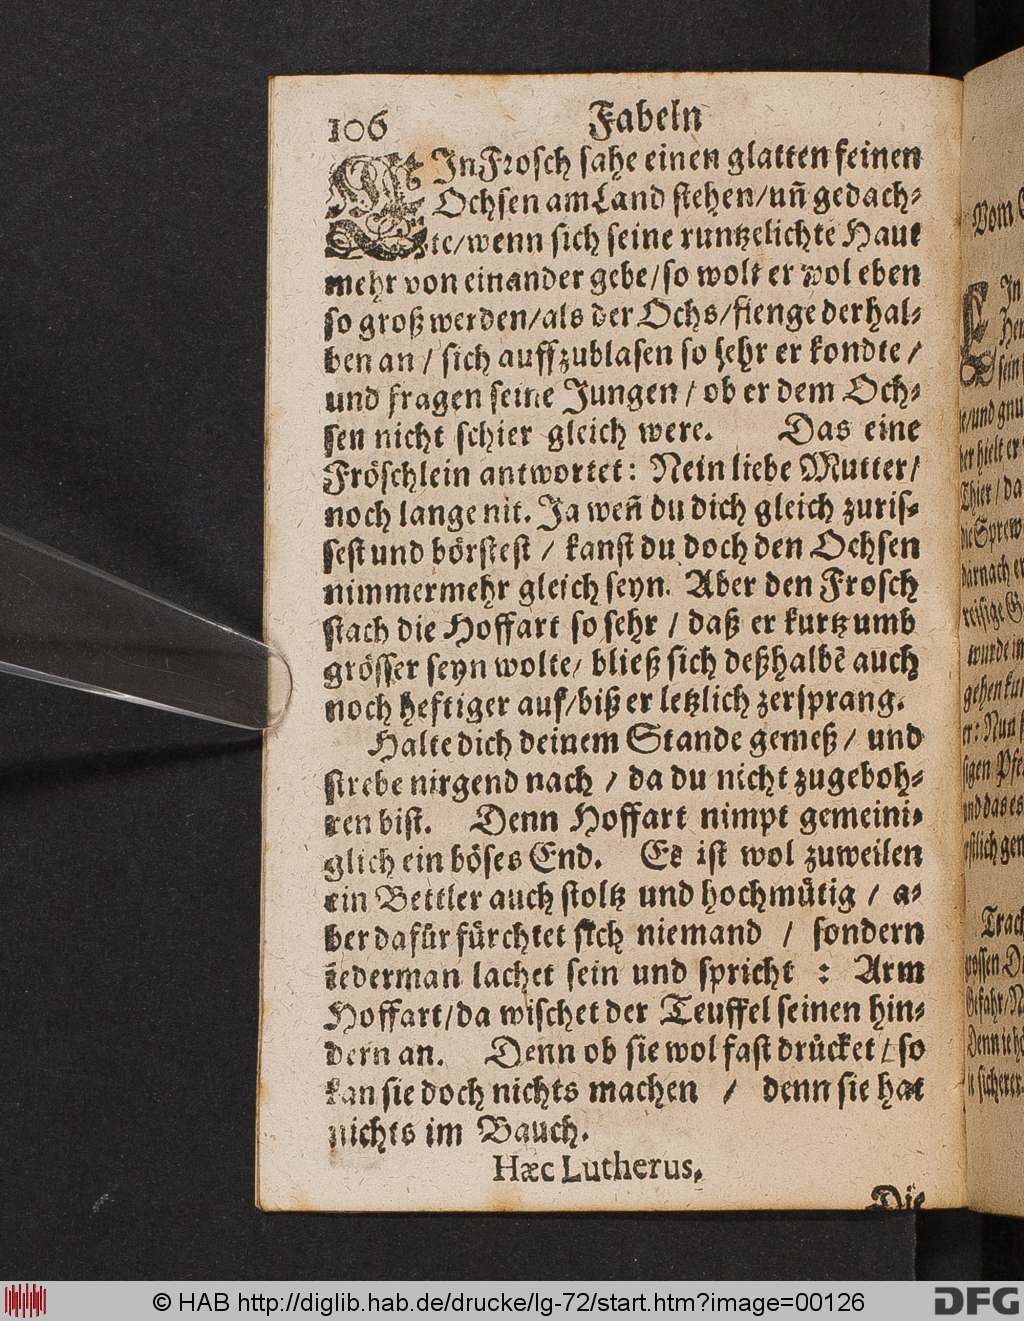 106 Fabeln
EIn Frosch sahe einen glatten feinen
Ochsen am Land stehen/uñ gedach⸗
te/wenn sich seine runtzelichte Haut
mehr von einander gebe/so wolt er wol eben
so groß werden/als der Ochs/fienge derhal⸗
ben an / sich auffzublasen so sehr er kondte /
und fragen seine Jungen / ob er dem Och⸗
sen nicht schier gleich were. Das eine
Fröschlein antwortet: Nein liebe Mutter/
noch lange nit. Ja weñ du dich gleich zuris⸗
sest und börstest / kanst du doch den Ochsen
nimmermehr gleich seyn. Aber den Frosch
stach die Hoffart so sehr / daß er kurtz umb
grösser seyn wolte/ bließ sich deßhalbẽ auch
noch heftiger auf/biß er letzlich zersprang.
Halte dich deinem Stande gemeß / und
strebe nirgend nach / da du nicht zugeboh⸗
ren bist. Denn Hoffart nimpt gemeini⸗
glich ein böses End. Es ist wol zuweilen
ein Bettler auch stoltz und hochmütig / a⸗
ber dafür fürchtet sich niemand / sondern
iederman lachet sein und spricht : Arm
Hoffart/da wischet der Teuffel seinen hin⸗
dern an. Denn ob sie wol fast drücket / so
kan sie doch nichts machen / denn sie hat
nichts im Bauch.
Hæc Lutherus.
Die
Vom
In
sein
/und gnu
her hielt er
Thier / da
die Sprew
darnach er
reisige G
wurde in
gehen kur
er: Nun
und das es
Trach
grossen
Gefahr/
© HAB http://diglib.hab.de/drucke/lg-72/start.htm?image=00126
DFG